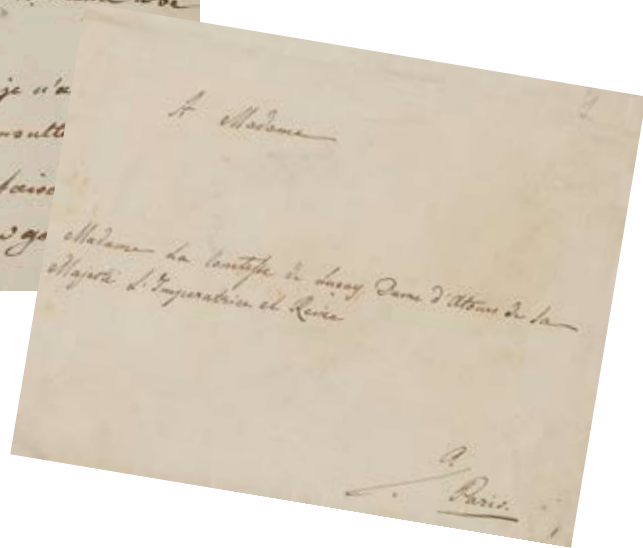 je n'a
A Madame
Madame La Comtesse de Luçay Dame d'Atours de Sa
Majesté L'Imperatrice et Reine
a
Paris.